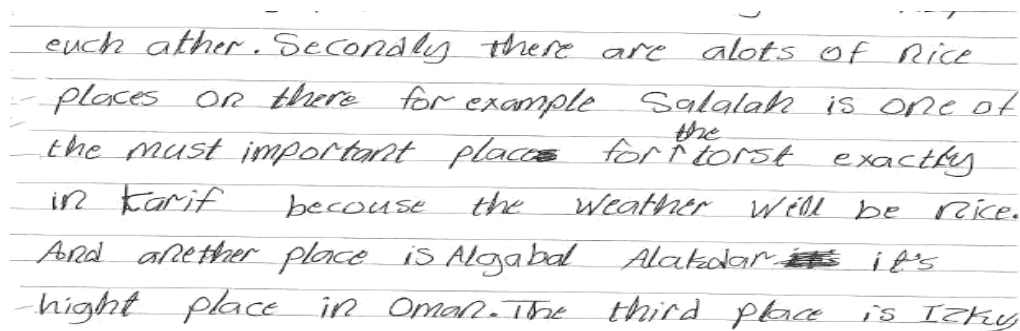 euch ather. Secondly there are alots of nice
places on there for example Salalah is one of
the must important place for the torst exactly
in karif becouse the weather will be nice.
And anether place is Algabal Alakdar it's
hight place in Oman. The third place is Izky